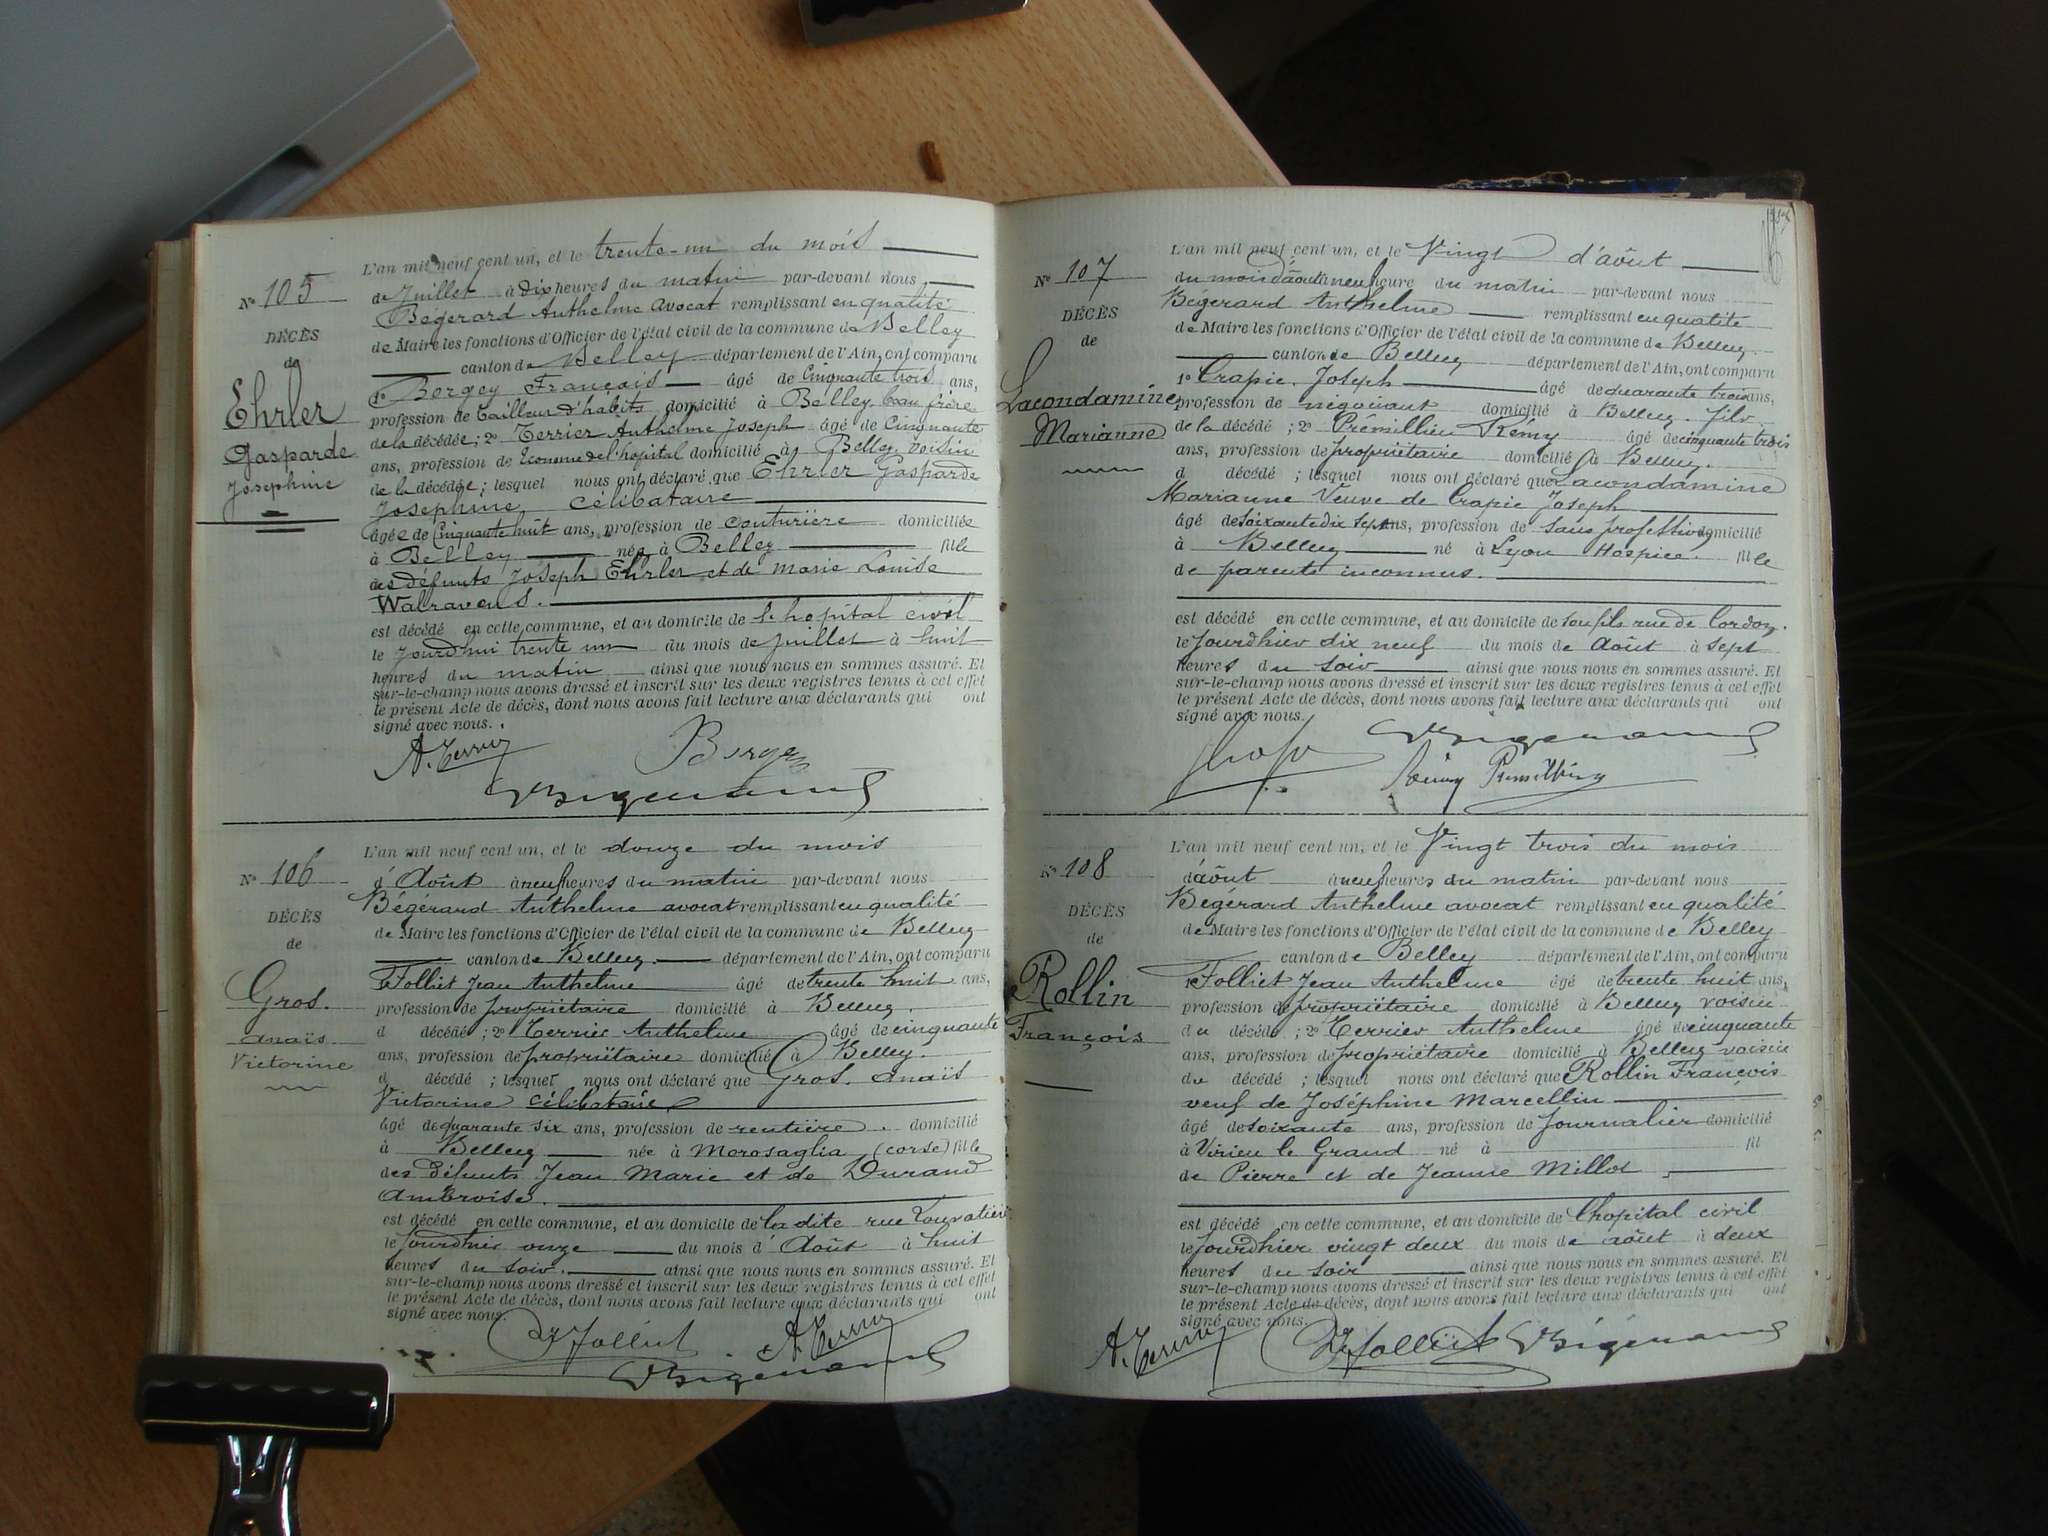 L'an mil neuf cent un, et le trente-un du mois
No 105
de Juillet à dix heures du matin par-devant nous
Bégérard Anthelme Avocat remplissant en qualité
DÉCÈS
de Maire les fonctions d'Officier de l'état civil de la commune de Belley
de
canton de Belley département de l'Ain, ont comparu
1o Bergey Français âgé de Cinquante trois ans,
Ehrler
profession de tailleur d'habits domicilié à Belley, beau frère
de la décédée; 2o Terrier Anthelme Joseph âgé de Cinquante
Gasparde
ans, profession de Econome de l'hopital domicilié à Belley, voisin
Josephine
de la décédée; lesquel nous ont déclaré que Ehrler Gasparde
Josephine, célibataire
âgée de Cinquante huit ans, profession de couturière domiciliée
à Belley née à Belley fille
des défunts Joseph Ehrler et de Marie Louise
Walravens.
est décédé en cette commune, et au domicile de l'hopital civil
le jourd'hui trente un du mois de juillet à huit
heures du matin ainsi que nous nous en sommes assuré. Et
sur-le-champ nous avons dressé et inscrit sur les deux registres tenus à cet effet
le présent Acte de décès, dont nous avons fait lecture aux déclarants qui ont
signé avec nous.
A. Terrier Bergey
L'an mil neuf cent un, et le douze du mois
No 106
d'Août à neuf heures du matin par-devant nous
Bégérard Anthelme avocat remplissant en qualité
DÉCÈS
de Maire les fonctions d'Officier de l'état civil de la commune de Belley
de
canton de Belley département de l'Ain, ont comparu
1o Folliet Jean Anthelme âgé de trente huit ans,
Gros.
profession de propriétaire domicilié à Belley.
d décédé; 2o Terrier Anthelme âgé de cinquante
Anaïs
ans, profession de propriétaire domicilié à Belley.
Victorine
d décédé; lesquel nous ont déclaré que Gros. Anaïs
Victorine célibataire
âgé de quarante six ans, profession de rentière. domicilié
à Belley née à Morosaglia (corse) fille
des défunts Jean Marie et de Durand
Ambroise.
est décédé en cette commune, et au domicile de la dite rue
le jourdhier onze du mois d'Août à huit
heures du soir. ainsi que nous nous en sommes assuré. Et
sur-le-champ nous avons dressé et inscrit sur les deux registres tenus à cet effet
le présent Acte de décès, dont nous avons fait lecture aux déclarants qui ont
signé avec nous.
JFolliet A. Terrier
L'an mil neuf cent un, et le Vingt d'août
No 107
du mois d'août à neuf heure du matin par-devant nous
Bégérard Anthelme remplissant en qualité
DÉCÈS
de Maire les fonctions d'Officier de l'état civil de la commune de Belley
de
canton de Belley département de l'Ain, ont comparu
1o Crapie. Joseph âgé de quarante trois ans,
Lacondamine
profession de négociant domicilié à Belley fils
Marianne
de la décédé; 2o Prémillieu Rémy âgé de cinquante trois
ans, profession de propriétaire domicilié à Belley.
d décédé; lesquel nous ont déclaré que Lacondamine
Marianne Veuve de Crapie Joseph
âgé de soixante dix sept ans, profession de sans profession domicilié
à Belley né à Lyon Hospice. fille
de parents inconnus.
est décédé en cette commune, et au domicile de son fils rue de Cordon.
le jourdhier dix neuf du mois de Août à sept
heures du soir ainsi que nous nous en sommes assuré. Et
sur-le-champ nous avons dressé et inscrit sur les deux registres tenus à cet effet
le présent Acte de décès, dont nous avons fait lecture aux déclarants qui ont
signé avec nous.
L'an mil neuf cent un, et le Vingt trois du mois
No 108
d'août à neuf heures du matin par-devant nous
Bégérard Anthelme avocat remplissant en qualité
DÉCÈS
de Maire les fonctions d'Officier de l'état civil de la commune de Belley
de
canton de Belley département de l'Ain, ont comparu
1o Folliet Jean Anthelme âgé de trente huit ans,
Rollin
profession de propriétaire domicilié à Belley voisin
du décédé; 2o Terrier Anthelme âgé de cinquante
François
ans, profession de propriétaire domicilié à Belley voisin
du décédé; lesquel nous ont déclaré que Rollin François
veuf de Joséphine Marcellin
âgé de soixante ans, profession de Journalier domicilié
à Virieu le Grand né à fil
de Pierre et de Jeanne Millot
est décédé en cette commune, et au domicile de l'hopital civil
le jourdhier vingt deux du mois de août à deux
heures du soir ainsi que nous nous en sommes assuré. Et
sur-le-champ nous avons dressé et inscrit sur les deux registres tenus à cet effet
le présent Acte de décès, dont nous avons fait lecture aux déclarants qui ont
signé avec nous.
A. Terrier JFolliet